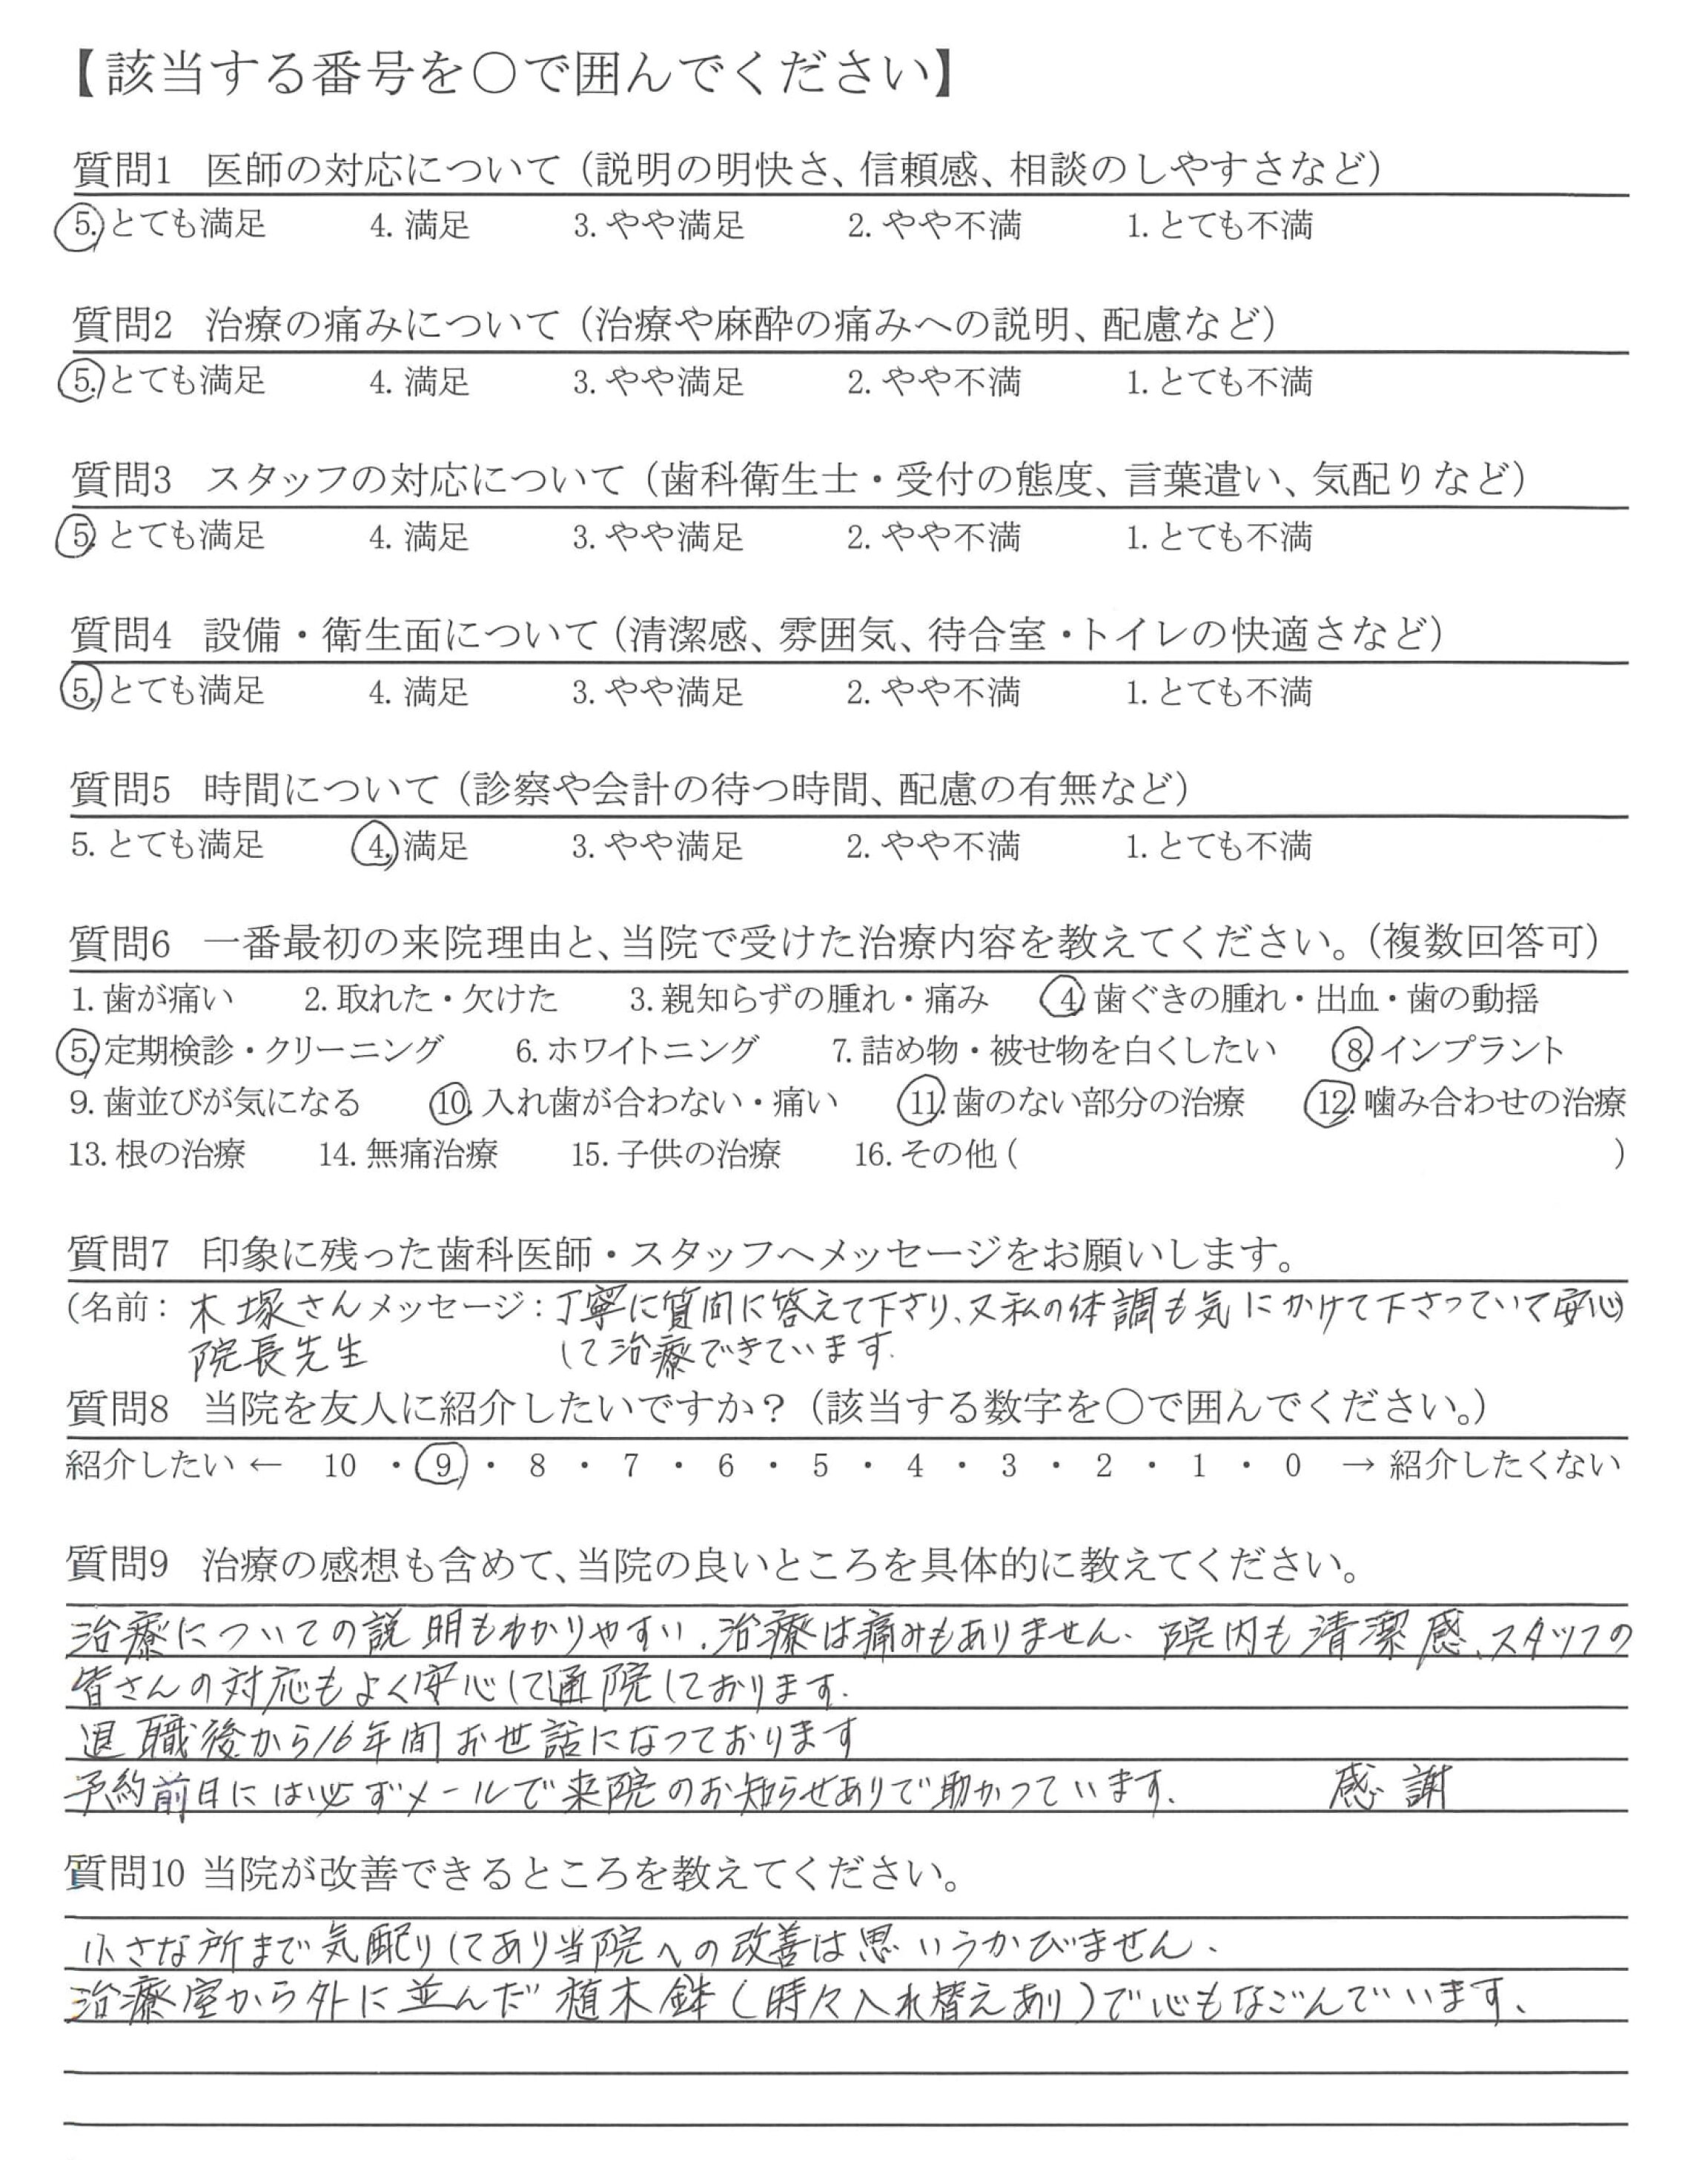 【該当する番号を○で囲んでください】
質問1 医師の対応について（説明の明快さ、信頼感、相談のしやすさなど）
5. とても満足 4. 満足 3. やや満足 2. やや不満 1. とても不満
質問2 治療の痛みについて（治療や麻酔の痛みへの説明、配慮など）
5. とても満足 4. 満足 3. やや満足 2. やや不満 1. とても不満
質問3 スタッフの対応について（歯科衛生士・受付の態度、言葉遣い、気配りなど）
5. とても満足 4. 満足 3. やや満足 2. やや不満 1. とても不満
質問4 設備・衛生面について（清潔感、雰囲気、待合室・トイレの快適さなど）
5. とても満足 4. 満足 3. やや満足 2. やや不満 1. とても不満
質問5 時間について（診察や会計の待つ時間、配慮の有無など）
5. とても満足 4. 満足 3. やや満足 2. やや不満 1. とても不満
質問6 一番最初の来院理由と、当院で受けた治療内容を教えてください。（複数回答可）
1. 歯が痛い 2. 取れた・欠けた 3. 親知らずの腫れ・痛み 4. 歯ぐきの腫れ・出血・歯の動揺
5. 定期検診・クリーニング 6. ホワイトニング 7. 詰め物・被せ物を白くしたい 8. インプラント
9. 歯並びが気になる 10. 入れ歯が合わない・痛い 11. 歯のない部分の治療 12. 噛み合わせの治療
13. 根の治療 14. 無痛治療 15. 子供の治療 16. その他（ ）
質問7 印象に残った歯科医師・スタッフへメッセージをお願いします。
（名前：木塚さん メッセージ：丁寧に質問に答えて下さり、又私の体調も気にかけて下さっていて安心
院長先生 して治療できています.
質問8 当院を友人に紹介したいですか？（該当する数字を○で囲んでください。）
紹介したい ← 10 ・ 9 ・ 8 ・ 7 ・ 6 ・ 5 ・ 4 ・ 3 ・ 2 ・ 1 ・ 0 → 紹介したくない
質問9 治療の感想も含めて、当院の良いところを具体的に教えてください。
治療についての説明もわかりやすい、治療は痛みもありません、院内も清潔感、スタッフの
皆さんの対応もよく安心して通院しております.
退職後から16年間お世話になっております
予約前日には必ずメールで来院のお知らせありで助かっています. 感謝
質問10 当院が改善できるところを教えてください。
小さな所まで気配りしてあり当院への改善は思いうかびません、
治療室から外に並んだ植木鉢（時々入れ替えあり）で心もなごんでいます、